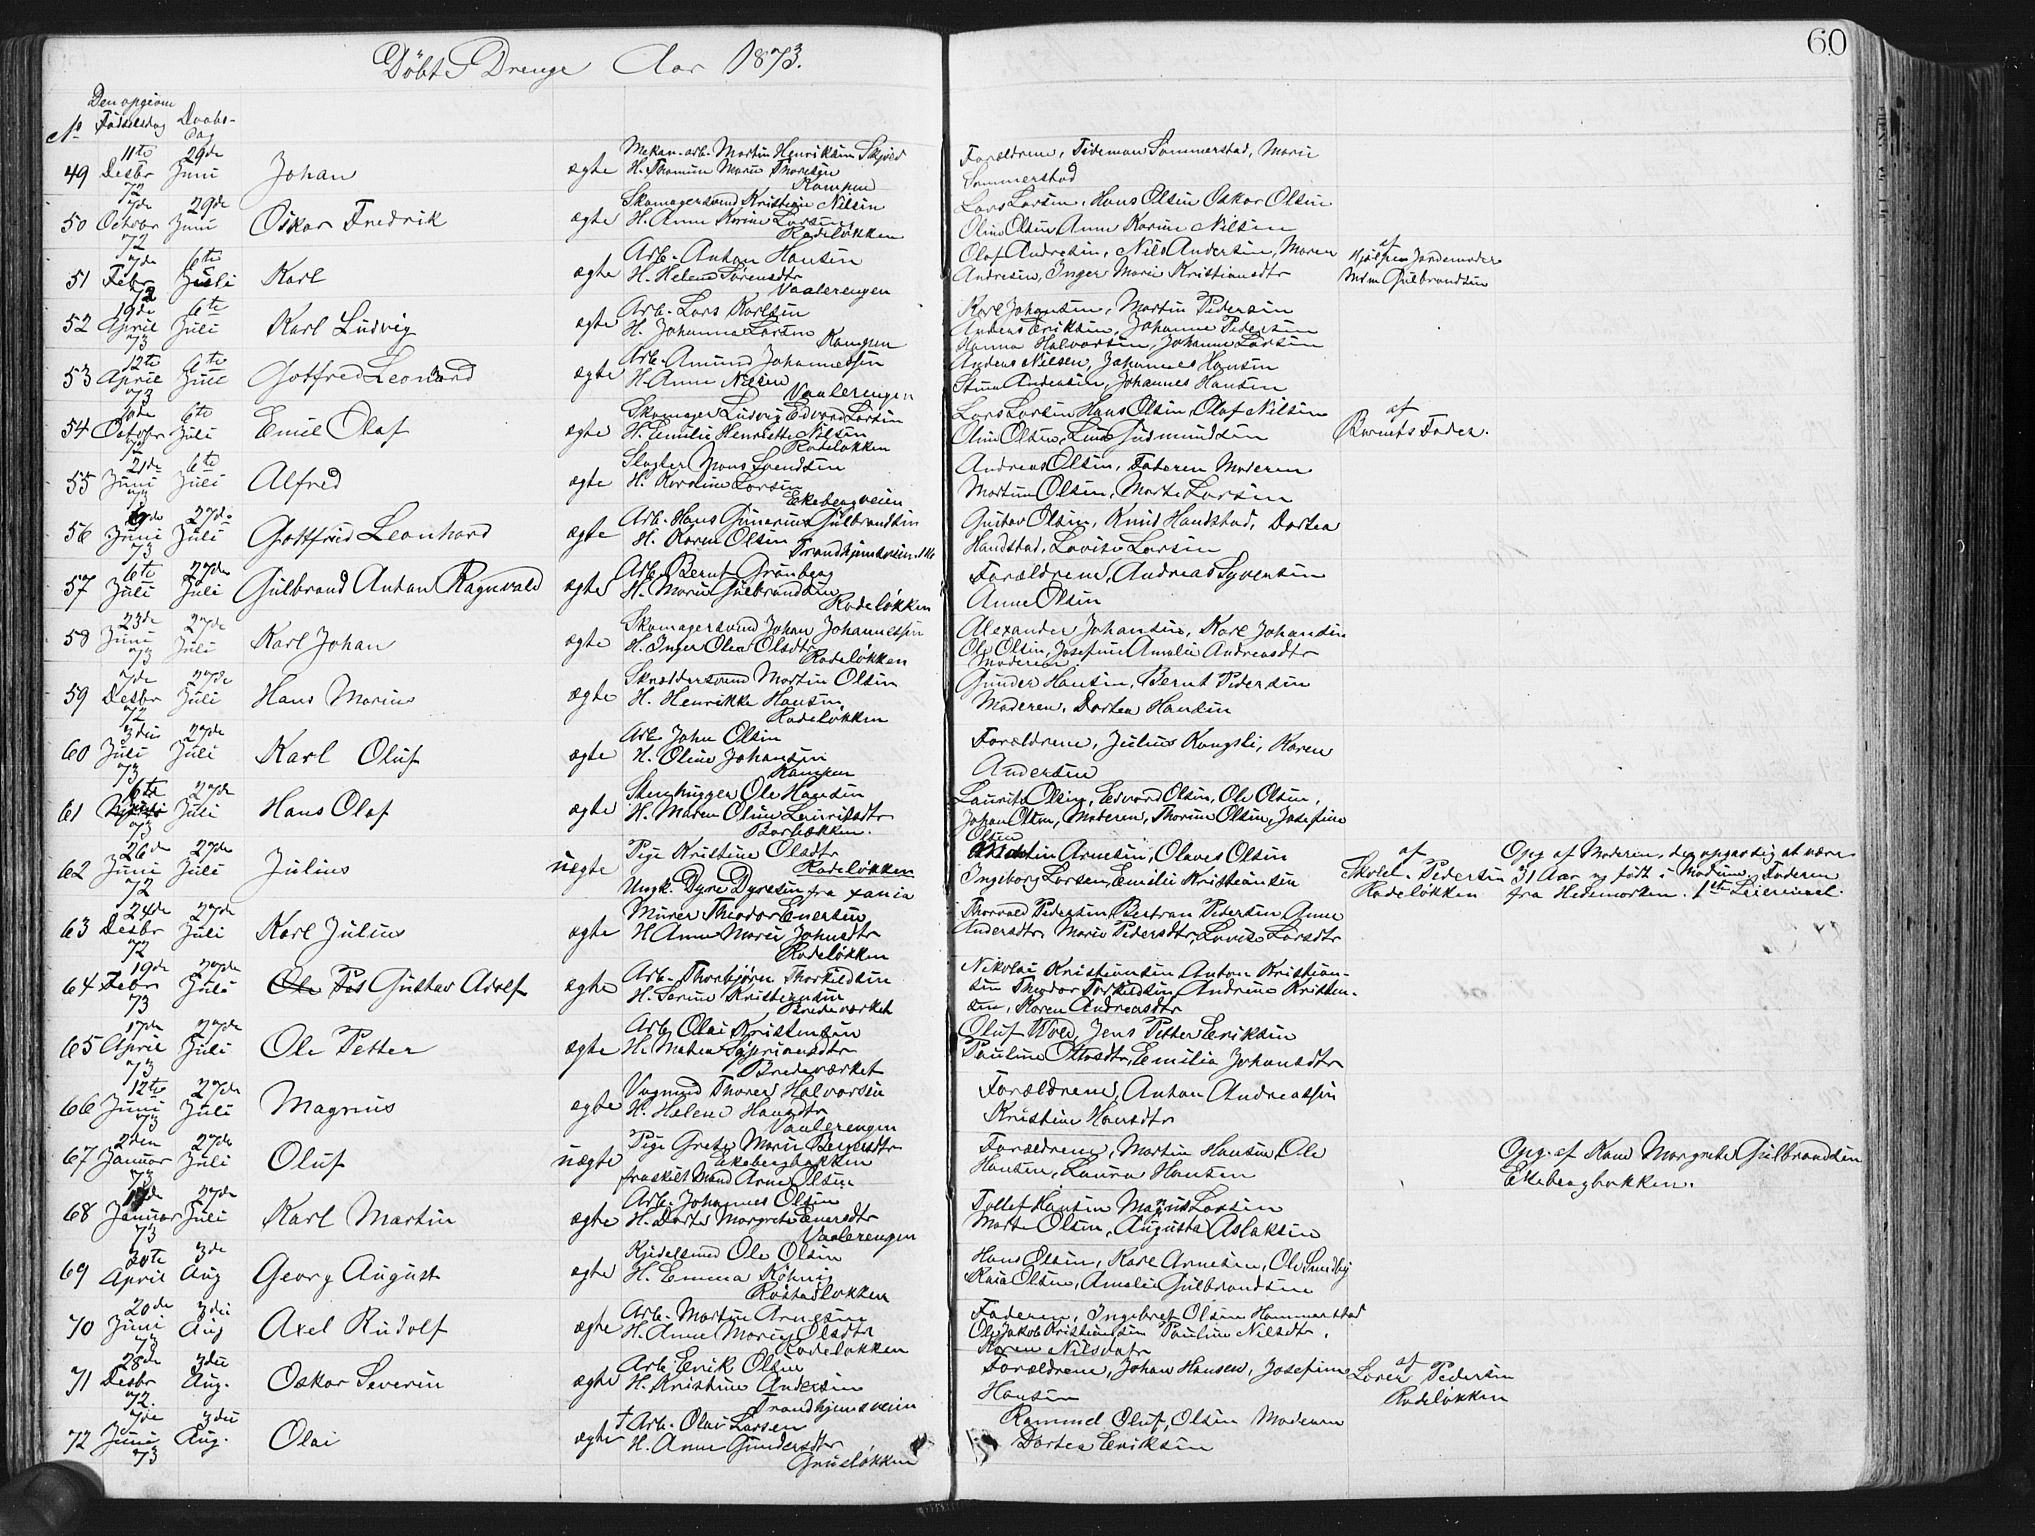 60
Döbte Drenge Aar 1873.
No Den opgivne Födselsdag Daabsdag
49 11te Desbr 72 29de Juni Johan ægte Mekan. arb. Martin Henriksen Skjöld
H. Thomine Marie Thoresen
Kampen
Forældrene, Tideman Sommerstad, Marie
Sommerstad
50 7de Octobr 72 29de Juni Oskar Fredrik ægte Skomagersvend Kristian Nilsen
H. Anne Karine Larsen
Rodeløkken
Lars Larsen, Hans Olsen Oskar Olsen
Oline Olsen Anne Karine Nilsen
51 7de Febr 72 6te Juli Karl ægte Arb. Anton Hansen
H. Helene Sørensdtr
Vaalerengen
Olaf Andresen, Nils Andersen, Maren
Andresen, Inger Marie Kristiansdtr
af Hjælpejordemoder
Mdm Gulbrandsen
52 19de April 73 6te Juli Karl Ludvig ægte Arb. Lars Karlsen
H. Johanna Larsen
Kampen
Karl Johansen, Martin Pedersen
Anders Eriksen, Johanne Pedersen
Hanna Halvorsen, Johanne Larsen
53 12te April 73 6te Juli Gotfred Leonard ægte Arb. Amund Johannessen
H. Anne Nilsen
Vaalerengen
Anders Nilsen, Johannes Hansen
Stina Andersen, Johannes Hansen
54 10de October 72 6te Juli Emil Olaf ægte Skomager Ludvig Edvard Larsen
H. Emilie Henriette Nilsen
Rodeløkken
Lars Larsen Hans Olsen, Olaf Nilsen
Oline Olsen, Lina Gudmundsen
af
Barnets Fader.
55 21de Juni 73 6te Juli Alfred ægte Slagter Mons Svendsen
H. Karoline Larsen
Ekebergveien
Andreas Olsen, Faderen Moderen
Martin Olsen, Marte Larsen
56 Juni 73 27de Juli Gottfrid Leonhard ægte Arb. Hans Gunerius Gulbrandsen
H. Karen Olsen
Trondhjemsveien 116
Gustav Olsen, Knud Handstad, Dortea
Handstad, Lovise Larsen
57 6te Juli 27de Juli Gulbrand Anton Ragnvald ægte Arb. Bernt Grönberg
H. Marie Gulbrandsen
Rodeløkken
Forældrene, Andreas Syversen
Anne Olsen
58 23de Juni 73 27de Juli Karl Johan ægte Skomagersvend Johan Johannessen
H. Inger Olea Olsdtr
Rodeløkken
Alexander Johansen, Karl Johansen
Ole Olsen, Josefine Amalie Andreasdtr
Moderen.
59 7de Desbr 72 27de Juli Hans Marius ægte Skræddersvend Martin Olsen
H. Henrikke Hansen
Rodeløkken
Gunder Hansen, Bernt Pedersen
Moderen, Dortea Hansen
60 3die Juli 73 27de Juli Karl Oluf ægte Arb. John Olsen
H. Oline Johansen
Kampen
Forældrene, Julius Kongsli, Karen
Andersen
61 6te 73 27de Juli Hans Olaf ægte Stenhugger Ole Hansen
H. Maren Oline Lauritsdtr
Laurits Olsen, Edvard Olsen, Ole Olsen,
Johan Olsen, Moderen, Thorine Olsen, Josefine
Olsen
62 26de Juni 72 27de Juli Julius uægte Pige Kristine Olsdtr
Rodeløkken
Ungk. Dyre Dyresen fra Xania
Martin Arnesen, Olaves Olsen
Ingeborg Larsen, Emilie Kristiansen
af
Skolel. Pedersen
Rodeløkken
Opg. af Moderen, der opgav sig at være
31 Aar og født i Modum, Faderen
fra Hedemarken. 1ste Leiermaal.
63 24de Desbr 72 27de Juli Karl Julius ægte Murer Theodor Enersen
H Anne Marie Johnsdtr
Rodeløkken
Thorvald Pedersen, Bertran Pedersen, Anne
Andersdtr, Marie Pedersdtr, Lovise Larsdtr
64 19de Febr 73 27de Juli Gustav Adolf ægte Arb. Thorbjørn Thorkildsen
H. Serine Kristensen
Bredeværket
Nikolai Kristiansen Anton Kristian-
sen Theodor Torkildsen, Andrine Kristen-
sen, Karen Andreasdtr
65 17de April 73 27de Juli Ole Petter ægte Arb. Olai Kristensen
H. Matea Syprianesdtr
Bredeværket
Oluf Wold, Jens Petter Eriksen
Pauline Ottosdtr, Emilia Johansdtr
66 12te Juni 73 27de Juli Magnus ægte Vognmd Thorer Halvorsen
H. Helene Hansdtr
Vaalerengen
Forældrene, Anton Andreassen
Kristine Hansdtr
67 2den Januar 73 27de Juli Oluf uægte Pige Grete Marie Bergersdtr
Ekebergbakken
fraskilt Mand Arne Olsen
Forældrene, Martin Hansen, Ole
Hansen, Laura Hansen
Opg. af Kone Margrete Gulbrandsen
Ekebergbakken.
68 Januar 73 27de Juli Karl Martin ægte Arb. Johannes Olsen
H. Dorte Margrete Enersdtr
Vaalerengen
Tollef Hansen Magnus Larsen
Marte Olsen, Augusta Aslaksen
69 30te April 3de Aug Georg August ægte Kjedelsmed Ole Olsen
H. Emma Köhnig
Hans Olsen, Karl Arnesen, Ole Sundby
Kaia Olsen, Amalie Gulbrandsen
70 20de Juni 73 3die Aug Axel Rudolf ægte Arb. Martin Arnesen
H. Anne Marie Olsdtr
Rodeløkken
Faderen, Ingebret Olsen Hammerstad
Ole Jakob Kristiansen Pauline Nilsdtr.
Karen Nilsdatr
71 28de Desbr 72. 3die Aug. Oskar Severin ægte Arb. Erik Olsen
H. Kristine Andersen
Trondhjemsveien
Forældrene, Johan Hansen, Josefine
Hansen
af
Lærer Pedersen
Rodeløkken
72 7de Juni 73 3die Aug. Olai ægte † Arb. Olai Larsen
H. Anne Gundersdtr
Grüneløkken
Rammel Oluf, Olsen Moderen
Dortea Eriksen